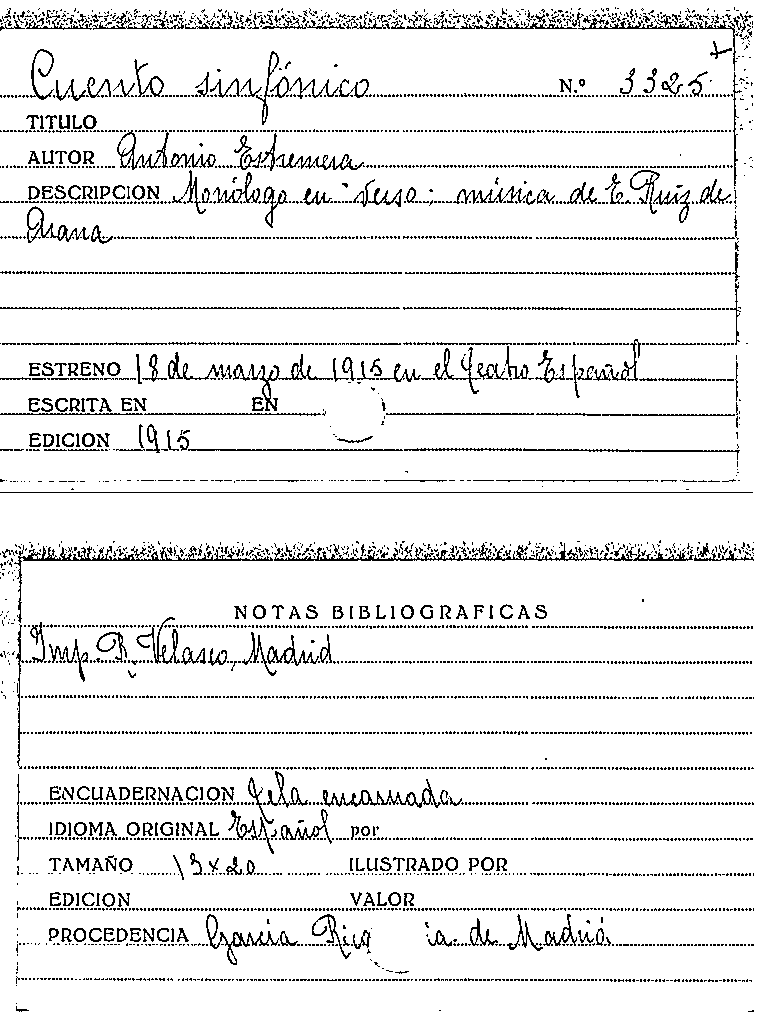 Cuento sinfónico N.º 3325
TITULO
AUTOR Antonio Estremera
DESCRIPCION Monólogo en verso; música de E. Ruiz de
Arana
ESTRENO 18 de marzo de 1915 en el Teatro Español
ESCRITA EN EN
EDICION 1915
NOTAS BIBLIOGRAFICAS
Imp. R. Velasco, Madrid
ENCUADERNACION Tela encarnada
IDIOMA ORIGINAL Español por
TAMAÑO 13x20 ILUSTRADO POR
EDICION VALOR
PROCEDENCIA García Rico ia. de Madrid